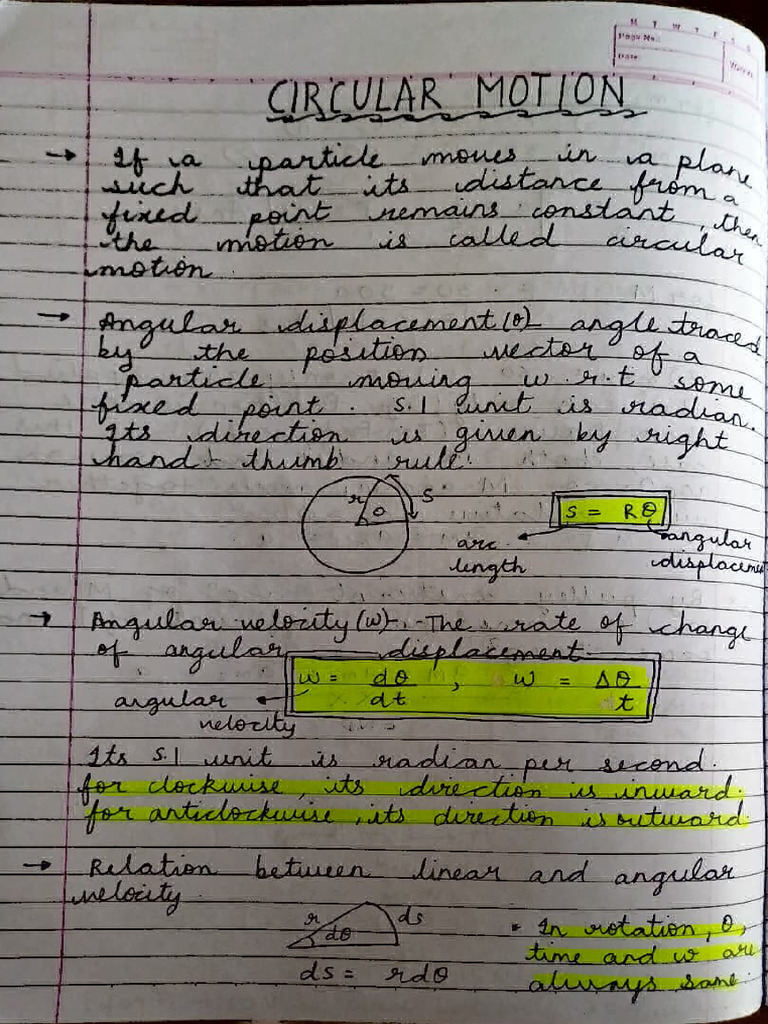 M T W T F S S
Page No.:
Date:
YOUVA
CIRCULAR MOTION
→ If a particle moves in a plane
such that its distance from a
fixed point remains constant, then
the motion is called circular
motion
→ Angular displacement (θ)- angle traced
by the position vector of a
particle moving w.r.t some
fixed point. S.I unit is radian.
Its direction is given by right
hand thumb rule.
r θ S
S = Rθ
arc length
angular displacemen
→ Angular velocity (w)- The rate of change
of angular displacement.
w = dθ/dt , w = Δθ/t
angular velocity
Its S.I unit is radian per second.
for clockwise, its direction is inward.
for anticlockwise, its direction is outward.
→ Relation between linear and angular
velocity.
r dθ ds
ds = rdθ
• In rotation, θ,
time and w are
always same.